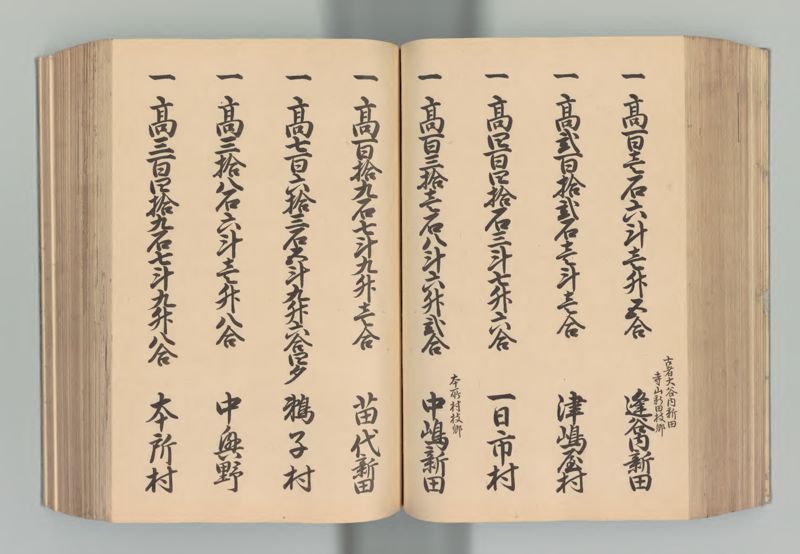 一 高百壱石六斗壱升五合
古者大谷内新田
寺山新田枝郷
逢谷内新田
一 高弐百拾弐石壱斗壱合
津嶋屋村
一 高四百四拾石三斗七升六合
一日市村
一 高百三拾壱石八斗六升弐合
本所村枝郷
中嶋新田
一 高百拾九石七斗九升壱合
苗代新田
一 高七百六拾三石五斗九升六合四夕
鵜子村
一 高三拾八石六斗壱升八合
中興野
一 高三百四拾九石七斗九升八合
本所村